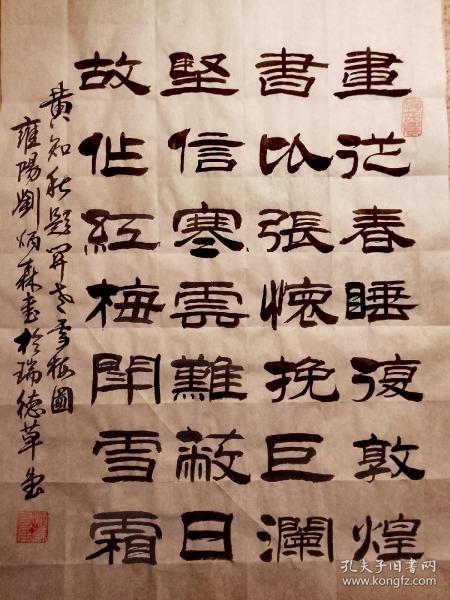 畫從春睡復敦煌
書以張懷挽巨瀾
堅信寒雲難蔽日
故作紅梅開雪霜
黄知秋題老雪梅圖
雍陽劉炳森書於瑞德草堂
孔夫子旧书网
www.kongfz.com